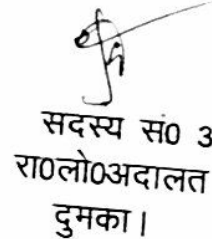 सदस्य सं0
रा0लो0अदालत
दुमका।